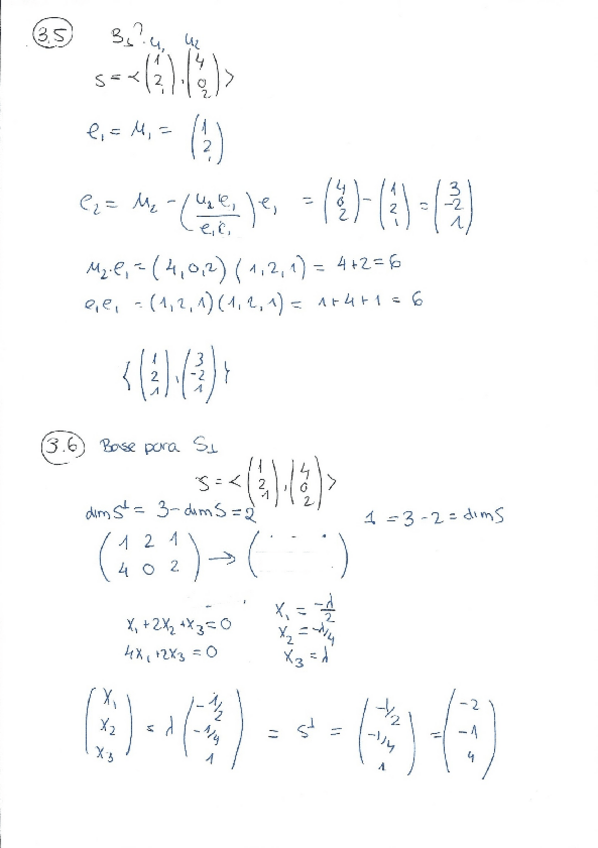 3.5 B⊥? u₁ u₂
S = < (1 2 1), (4 0 2) >
e₁ = u₁ = (1 2 1)
e₂ = u₂ - (u₂e₁ / e₁e₁) e₁ = (4 0 2) - (1 2 1) = (3 -2 1)
u₂·e₁ = (4,0,2) (1,2,1) = 4+2 = 6
e₁e₁ = (1,2,1)(1,2,1) = 1+4+1 = 6
{ (1 2 1), (3 -2 1) }
3.6 Base para S⊥
S = < (1 2 1), (4 0 2) >
dim S⊥ = 3 - dim S = 2 1 = 3 - 2 = dim S
(1 2 1 / 4 0 2) → (· · ·)
x₁+2x₂+x₃=0 x₁ = -λ/2
x₂ = -λ/4
4x₁+2x₃=0 x₃ = λ
(x₁ x₂ x₃) = λ (-1/2 -1/4 1) = S⊥ = (-1/2 -1/4 1) = (-2 -1 4)